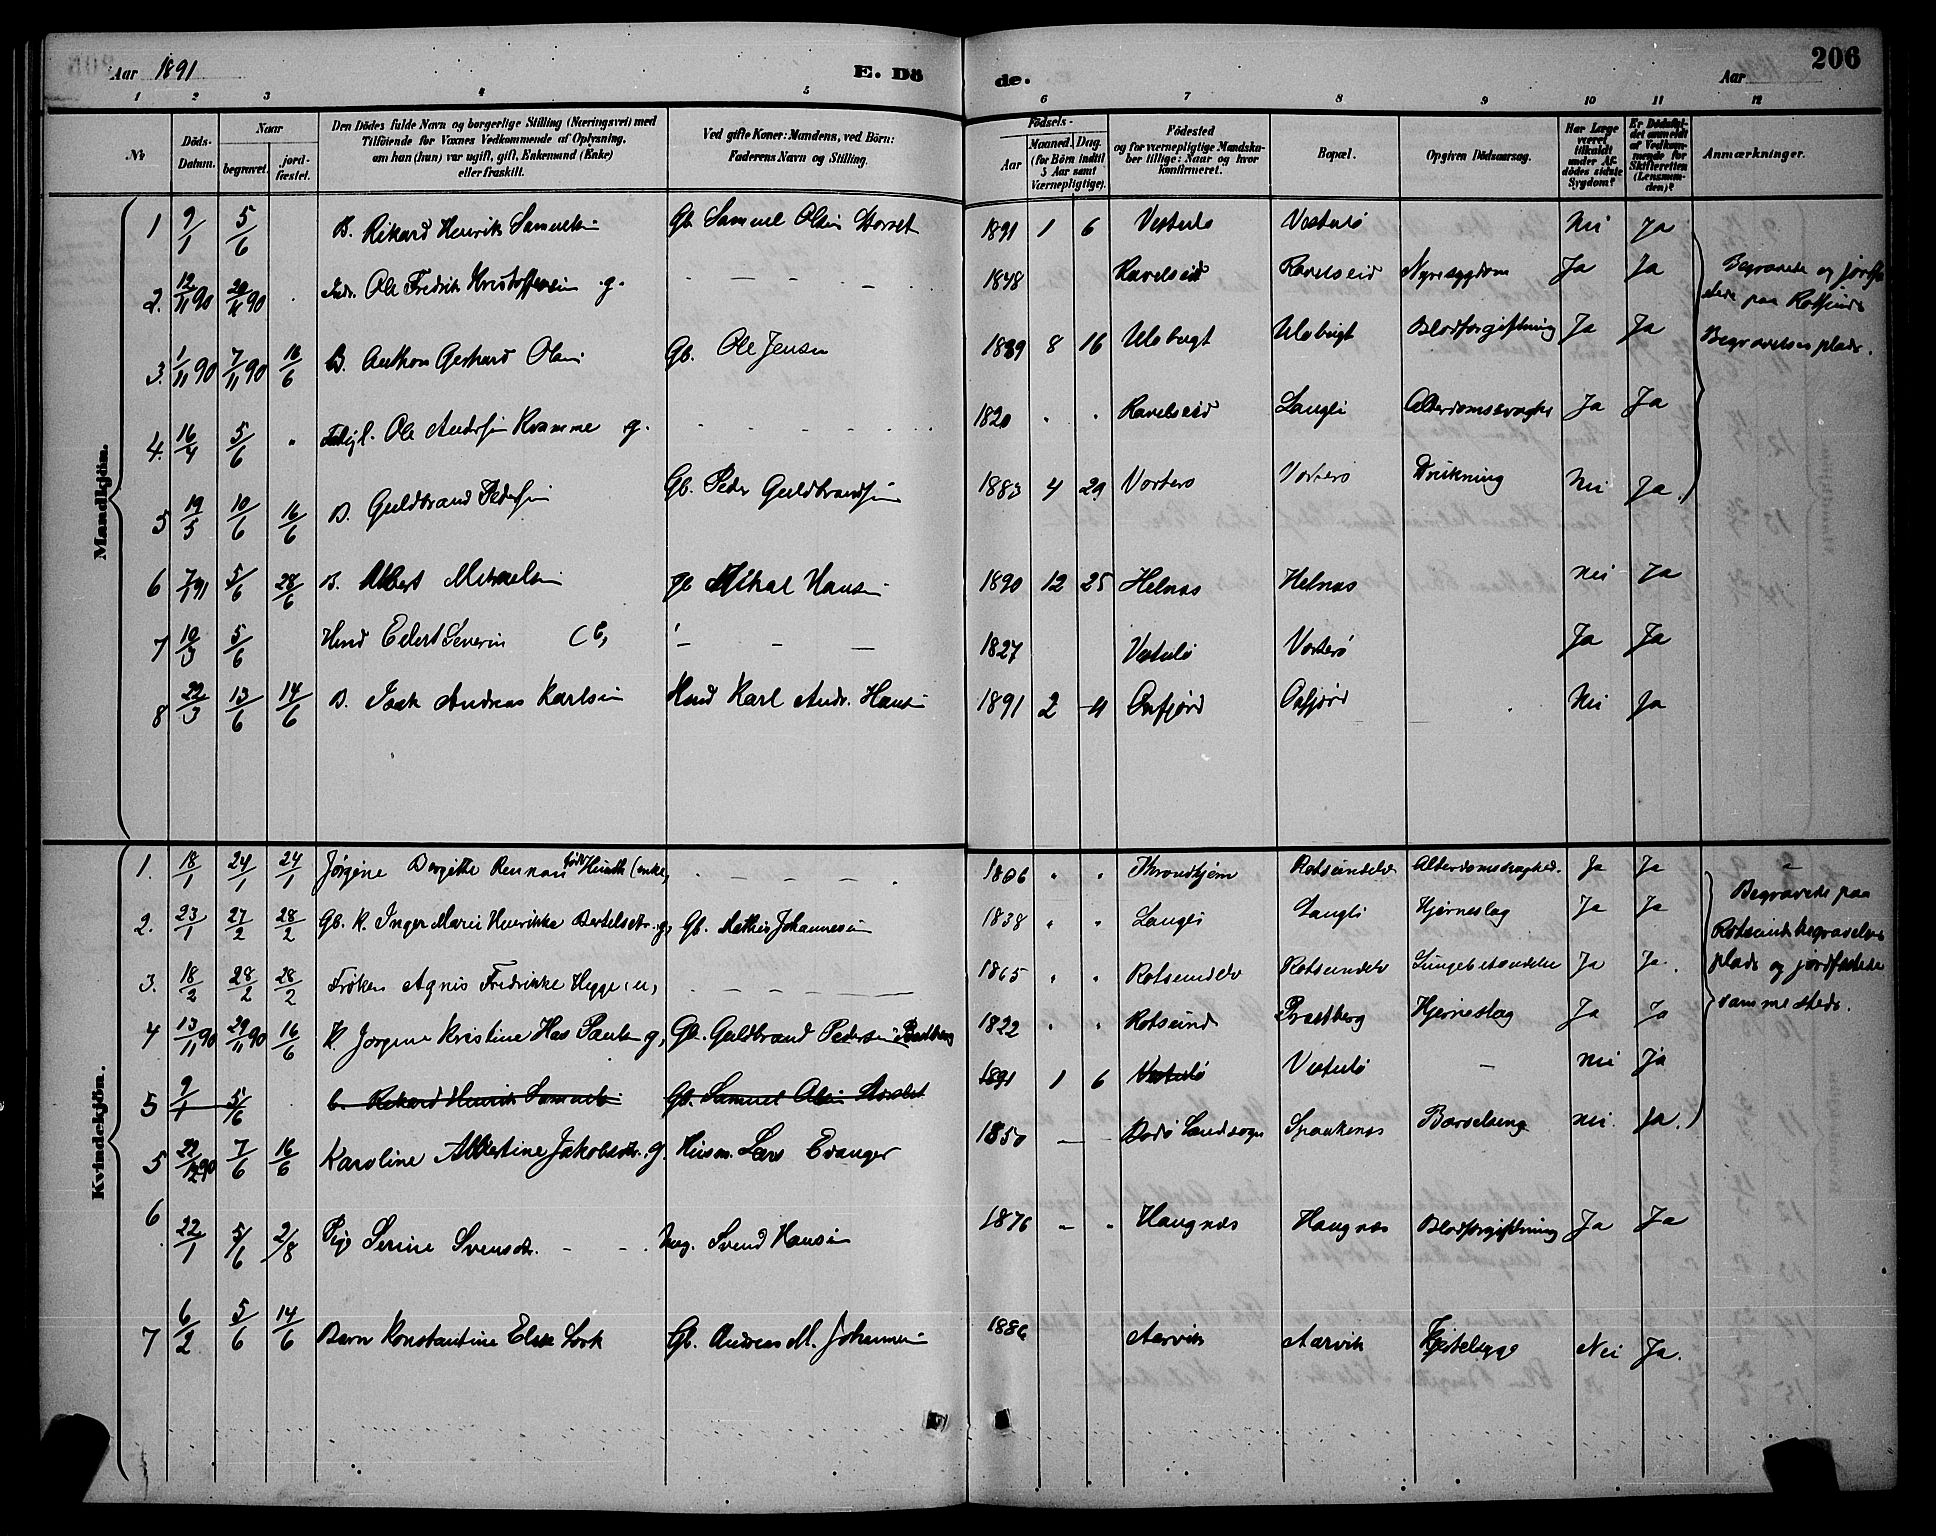 206
Aar 1891
E. Dö
de.
Aar
1 2 3 4 5 6 7 8 9 10 11 12
No
Döds-Datum.
Naar
begravet.
jord-fæstet.
Den Dödes fulde Navn og borgerlige Stilling (Næringsvei) med
Tilföiende for Voxnes Vedkommende af Oplysning,
om han (hun) var ugift, gift, Enkemand (Enke)
eller fraskilt.
Ved gifte Koner: Mandens, ved Börn:
Faderens Navn og Stilling.
Födsels-
Aar
Maaned. Dag.
(for Börn indtil
5 Aar samt
Værnepligtige).
Födested
og for værnepligtige Mandska-
ber tillige: Naar og hvor
konfirmeret.
Bopæl.
Opgiven Dödsaarsag.
Har Læge
været
tilkaldt
under Af-
dödes sidste
Sygdom?
Er Dödsfal-
det anmeldt
af Vedkom-
mende for
Skifteretten
(Lensman-
den)?
Anmærkninger.
Mandkjön.
1 9/1 5/6 B. Rikard Henrik Samuelsen Gb. Samuel Olsen Storslet 1891 1 6 Vesterlø Vesterlø Nei Ja
2. 12/11 90 Ole Fredrik Kristoffersen g. – – – – 1848 Ravelseid Ravelseid Nyresygdom Ja Ja
3. 1/11 90 7/11 90 16/6 B. Anthon Gerhard Olsen Gb. Ole Jensen 1889 8 16 Uløbugt Uløbugt Blodforgiftning Ja Ja
4. 16/4 5/6 " Ole Andersen Kvamme g. 1820 " " Ravelseid Langli Ja Ja
5 19/5 10/6 16/6 B. Guldbrand Pedersen Gb. Peder Guldbrandsen 1883 4 29 Vorterø Vorterø Drukning Nei Ja.
Begravede og jordfæ-
stede paa Rotsunds
Begravelsesplads.
6 7/1 91 5/6 28/6 B. Albert Mikaelsen Mikal Hansen 1890 12 25 Helnæs Helnæs Nei Ja
7 10/3 5/6 Eilert Severin – – 1827 Vorterø Ja Ja
8 22/3 13/6 14/6 B. Isak Andreas Karlsen Karl Andr. Hansen 1891 2 4 Oxfjord Oxfjord – Nei Ja
Kvindekjön.
1. 18/1 24/1 24/1 Jørgine Bergitte Rennau född (enke) 1806 " " Throndhjem Rotsundelv Alderdomssvaghed. Ja Ja
2. 23/1 27/2 28/2 Gb. K. Inger Marie Henrikke Bertelsdtr. g, Gb. Mathis Johannesen 1838 " " Langli Langli Hjerneslag Ja Ja
3. 18/2 28/2 28/2 Frøken Agnes Fredrikke Hegge (u) – – – – 1865 " " Rotsundelv Rotsundelv Lungebetændelse Ja Ja.
4 13/11 90 29/11 90 16/6 K. Jørgine Kristine g, Gb. Guldbrand Pedersen Bratberg 1822 " " Rotsund Bratberg Hjerneslag Ja Ja
5 9/1 5/6 Rikard Henrik Samuelsen Gb. Samuel Olsen Storslet 1891 1 6 Vesterlø Vesterlø – Nei Ja
5 22/12 90 7/6 16/6 Karoline Albertine Jakobsdtr. g. Husm. Lars Evanger 1850 – – Bodø Landsogn Spaakenes Barselseng Nei. Ja.
Begravede paa
Rotsunds begravelses
plads og jordfæstede
samme steds.
6 22/1 5/6 2/8 Pige Serine Svensdtr. – – Svend Hansen 1876 – " Haugnæs Haugnæs Blodforgiftning Ja Ja
7 6/2 5/6 14/6 Barn Konstantine Else Gb. Andreas M. Johannesen 1886 Aarvik Aarvik Nei Ja.